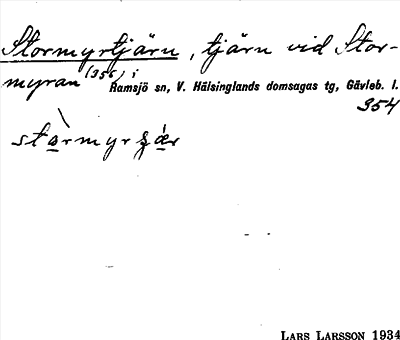 Stormyrtjärn, tjärn vid Stor-
myran (356) i
Ramsjö sn, V. Hälsinglands domsagas tg, Gävleb. l.
354
LARS LARSSON 1934